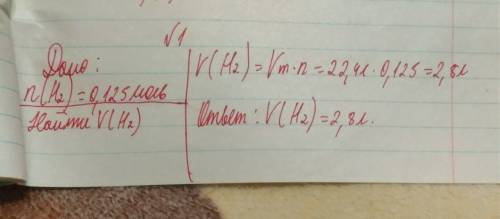 √1
Дано:
n(H₂)=0,125 моль
Найти V(H₂)
V(H₂)=Vm·n=22,4л·0,125=2,8л
Ответ: V(H₂)=2,8л.